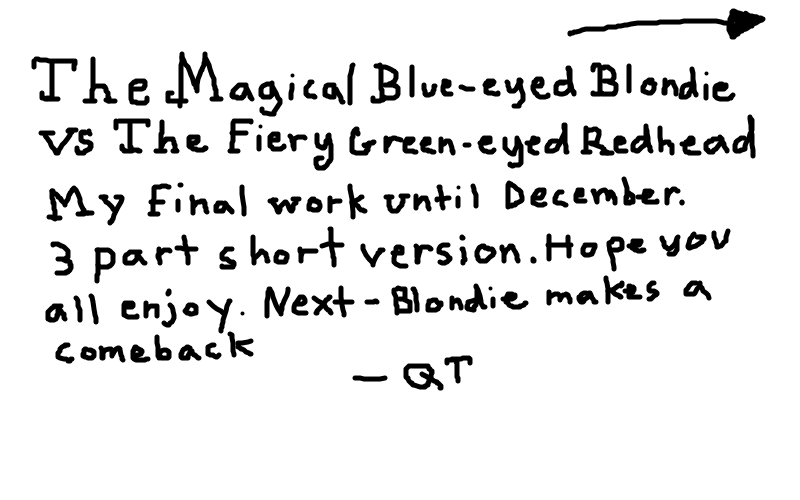 The Magical Blue-eyed Blondie
vs The Fiery Green-eyed Redhead
My final work until December.
3 part short version. Hope you
all enjoy. Next - Blondie makes a
comeback
- QT